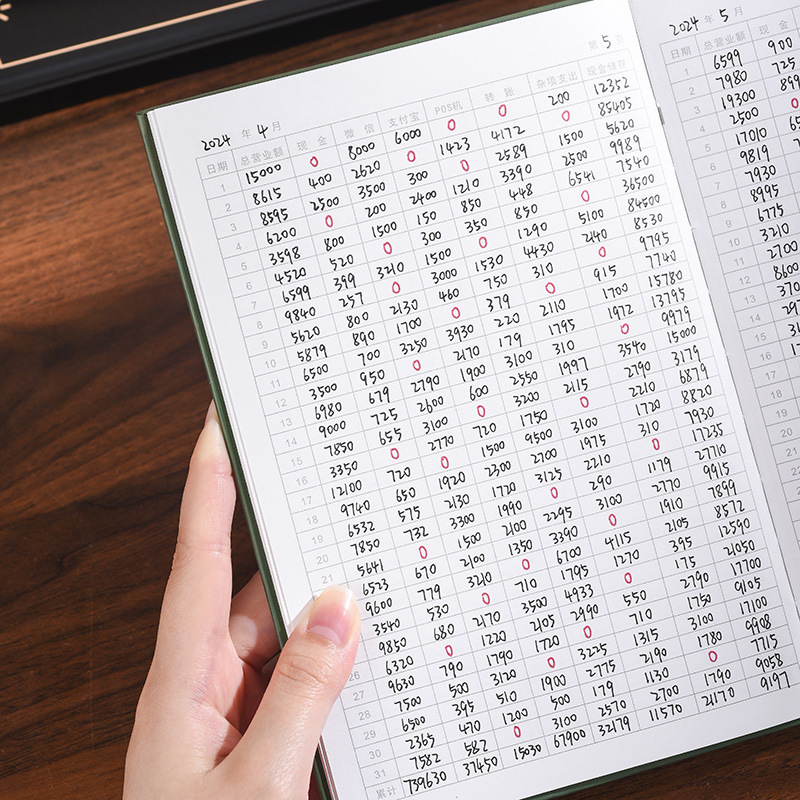 第 5 页
2024 年 4 月
日期 总营业额 现金 微信 支付宝 POS机 转账 杂项支出 现金储存
1 15000 0 8000 6000 0 0 200 12352
2 8615 400 2620 0 1423 4172 0 85405
3 8595 2500 3500 300 0 2589 1500 5620
4 6200 0 200 2400 1210 3390 2500 9989
5 3598 800 1500 150 850 448 6541 7540
6 4520 520 0 300 350 850 0 36500
7 6599 399 3210 1500 0 1290 5100 84500
8 9840 257 0 3000 1530 4430 2140 8530
9 5620 800 2130 460 750 310 0 9795
10 5879 890 1700 0 379 0 915 7740
11 6500 700 3250 3930 220 2110 1700 15780
12 3500 950 0 2170 179 1795 1972 13795
13 6980 679 2790 1900 3100 310 0 9979
14 9000 725 2600 600 2550 1997 3540 15000
15 7850 655 3100 0 3200 2115 2790 3179
16 3350 0 2770 720 1750 0 2210 6879
17 12100 720 0 1500 9500 3100 1720 8820
18 9740 650 1920 2300 2700 1975 310 7930
19 6532 575 2130 1720 3125 2210 0 17235
20 7850 732 3300 1990 0 290 1179 27710
21 5641 0 1500 2100 2295 3100 2770 9915
6523 670 2100 1350 3390 0 1910 7899
9600 779 3210 0 6700 4115 2105 8572
3540 530 0 710 1795 1270 395 12590
9850 680 2170 3500 4933 0 175 21050
26 6320 0 1220 2105 2990 550 2790 17700
27 9630 790 1790 1720 0 710 1750 9105
28 7500 500 3120 0 3225 1315 3100 17100
29 6500 395 510 1900 2775 2190 1780 9908
30 2365 470 1200 500 179 1130 0 7715
31 7582 582 0 3100 2570 2700 1790 9058
累计 739630 37450 15030 67900 32179 11570 21170 9197
2024 年 5 月
日期 总营业额 现金
1 6599 900
2 7980 725
3 19300
4 2500 0
5 17010
6 9819
7 7930
8 8995
9 6775
10 3210
11 2700
12 8600
13
14
15
16
17
18
19
20
21
22